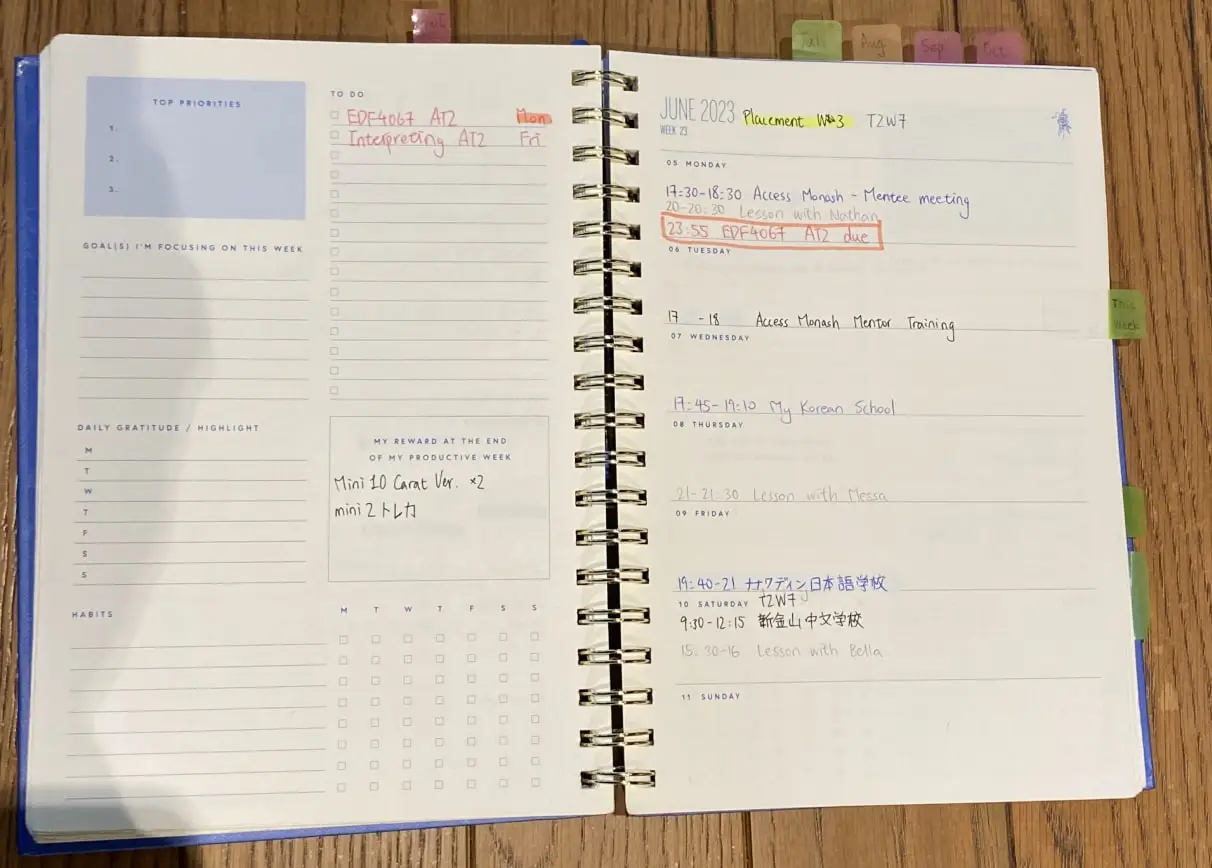 Jul
Aug
Sep
Oct
TOP PRIORITIES
1.
2.
3.
TO DO
EDF4067 AT2 Mon
Interpreting AT2 Fri
GOAL(S) I'M FOCUSING ON THIS WEEK
DAILY GRATITUDE / HIGHLIGHT
M
T
W
T
F
S
S
MY REWARD AT THE END
OF MY PRODUCTIVE WEEK
Mini 10 Carat Ver. ×2
mini 2 トレカ
HABITS
M T W T F S S
JUNE 2023 Placement W3 T2W7
WEEK 23
05 MONDAY
17:30-18:30 Access Monash - Mentee meeting
20-20:30 Lesson with Nathan
23:55 EDF4067 AT2 due
06 TUESDAY
17 -18 Access Monash Mentor Training
07 WEDNESDAY
17:45-19:10 My Korean School
08 THURSDAY
21-21:30 Lesson with Messa
09 FRIDAY
19:40-21 ナナワディン日本語学校
10 SATURDAY T2W7
9:30-12:15 新金山中文学校
15:30-16 Lesson with Bella
11 SUNDAY
This
Week